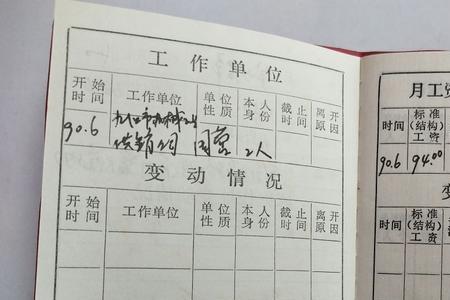 工作单位
开始时间 工作单位 单位性质 本人身份 截止时间 离开原因
90.6 九江市
供销公司 国营 工人
变动情况
开始时间 工作单位 单位性质 本人身份 截止时间 离开原因
月工资
时间 标准(结构)工资
90.6 94.00
时间 标准(结构)工资